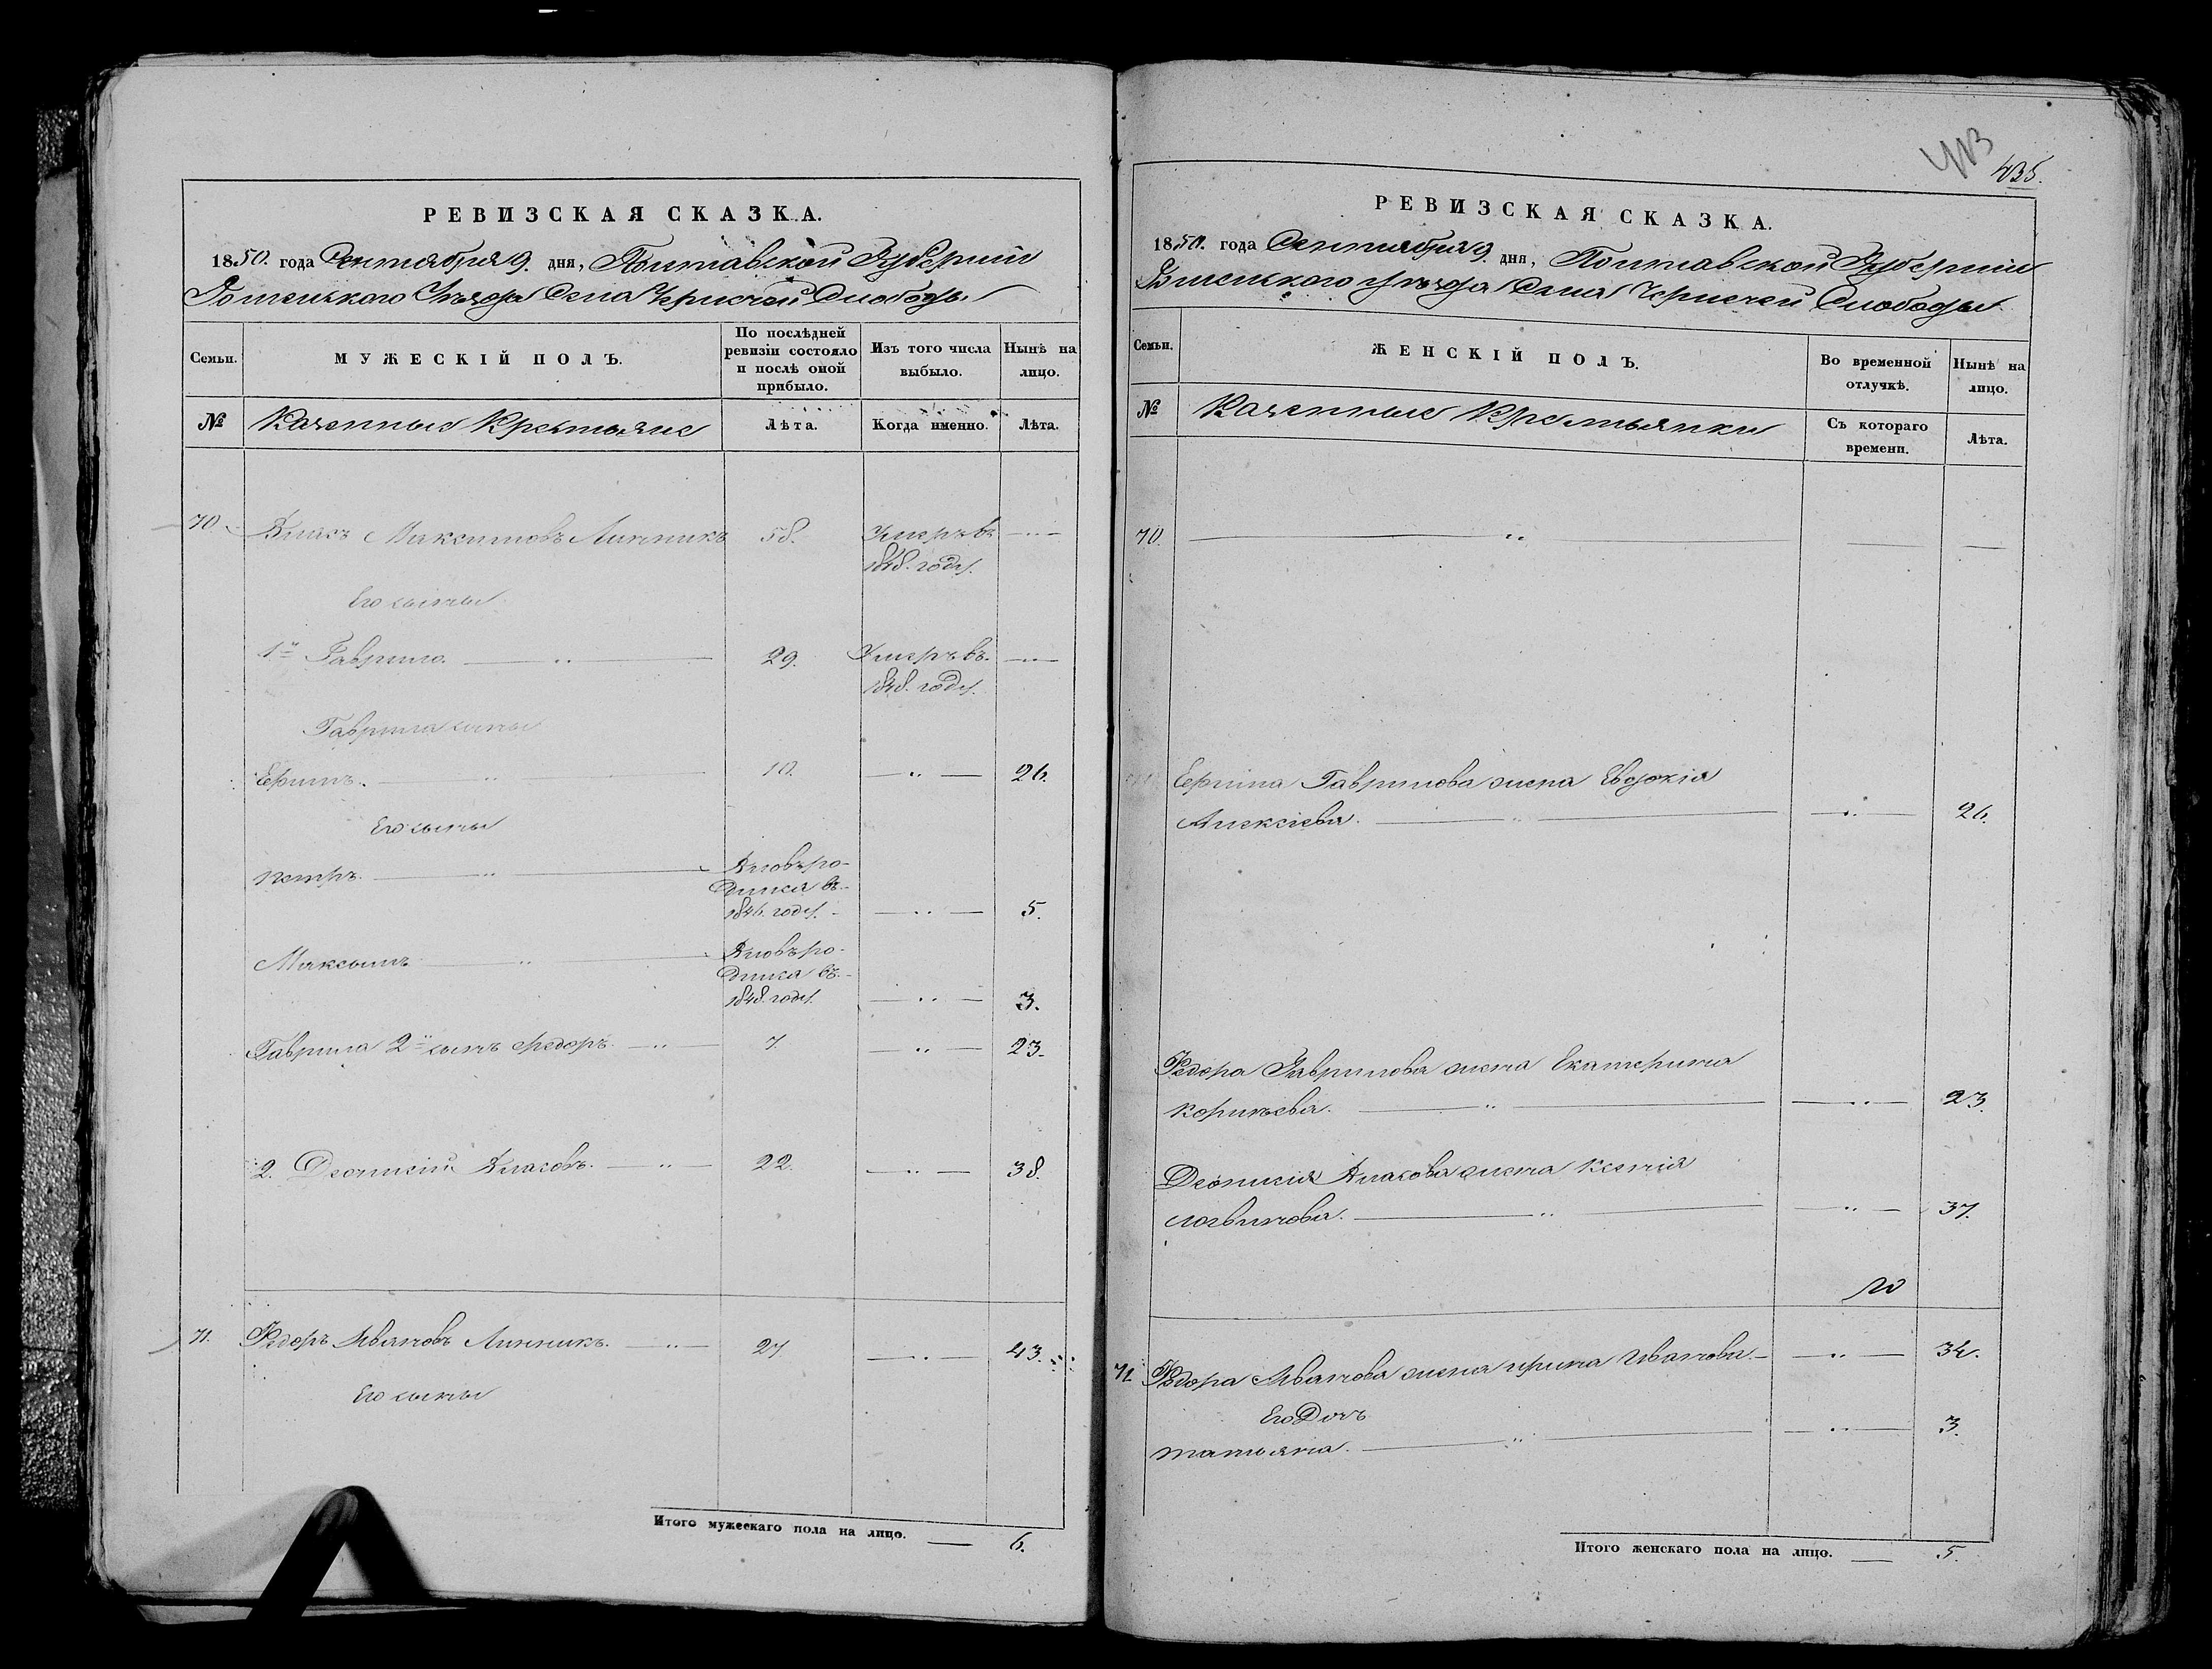 РЕВИЗСКАЯ СКАЗКА.
1850. года Сентября 9. дня, Полтавской Губернии
Роменского Уезда Села Чернечей Слободы
Семьи.
МУЖЕСКІЙ ПОЛЪ.
По послѣдней ревизіи состояло и послѣ оной прибыло.
Изъ того числа выбыло.
Нынѣ на лицо.
№ Казенные Крестьяне Лѣта. Когда именно. Лѣта.
70. Власъ Максимовъ Линникъ 58. Умеръ въ
1848. году.
Его сыны
1й Гаврило. 29. Умеръ въ.
1848. году.
Гаврила сыны
Ефимъ. 10. 26.
Его сыны
Петръ. Вновь ро-
дился въ
1846. году. 5.
Максимъ Вновь ро-
дился въ.
1848. году. 3.
Гаврила 2й сынъ Федоръ. 7. 23.
2. Деонисій Власовъ. 22. 38.
71. Федоръ Ивановъ Линникъ. 27. 43.
Его сыны
Итого мужескаго пола на лицо. 6.
435.
РЕВИЗСКАЯ СКАЗКА.
1850. года Сентября 9. дня, Полтавской Губернии
Роменского уезда Села Чернечей Слободы
Семьи.
ЖЕНСКІЙ ПОЛЪ.
Во временной отлучкѣ.
Нынѣ на лицо.
№ Казенные Крестьянки Съ котораго времени. Лѣта.
70.
Ефима Гаврилова жена Евдокія
Алексіева. 26.
Федора Гаврилова жена Екатерина
Корнѣева. 23.
Деонисія Власова жена Ксенія
Логвинова. 37.
71. Федора Иванова жена Ирина Иванова 34.
Его Дочь
Татьяна. 3.
Итого женскаго пола на лицо. 5.